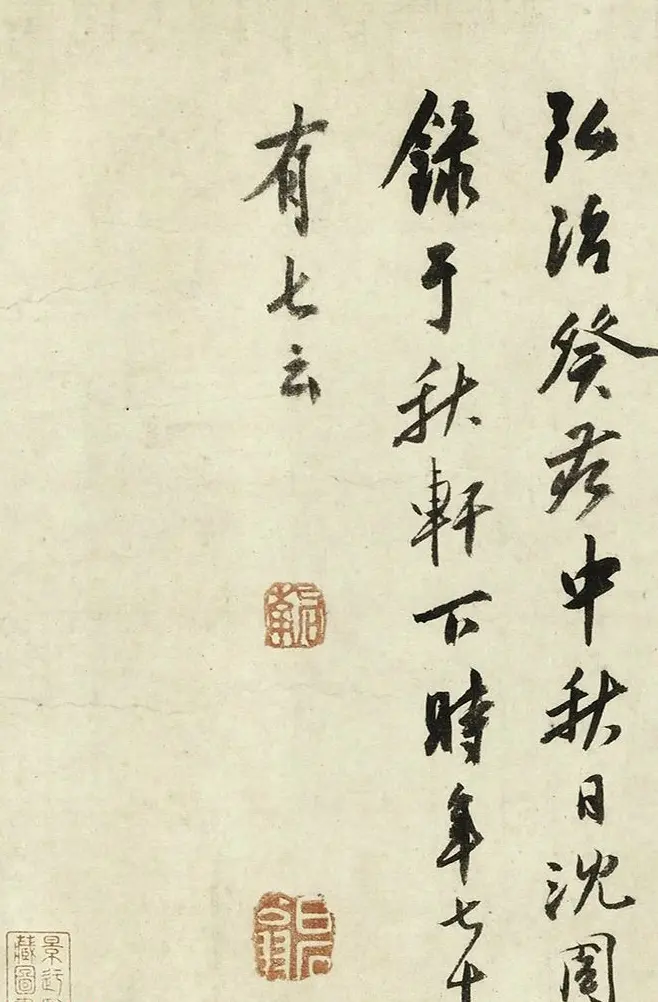 弘治癸亥中秋日沈周
錄于秋軒下時年七十
有七云
啟南